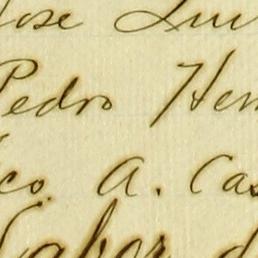 Jose Lui
Pedro Hern
co. A. Cas
Labor d